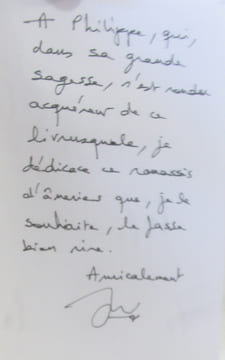 A Philippe, qui,
dans sa grande
sagesse, s'est rendu
acquéreur de ce
livrusquule, je
dédicace ce ramassis
d'âneries que, je le
souhaite, le fasse
bien rire.
Amicalement